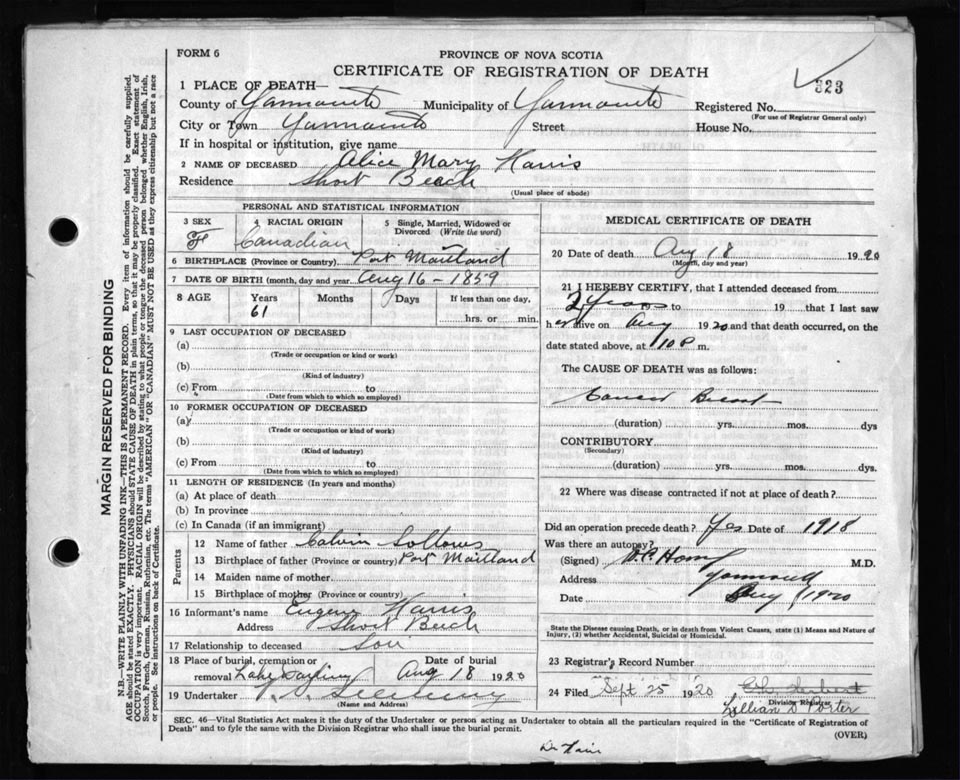 FORM 6
PROVINCE OF NOVA SCOTIA
CERTIFICATE OF REGISTRATION OF DEATH
323
1 PLACE OF DEATH—
County of Yarmouth Municipality of Yarmouth Registered No.
(For use of Registrar General only)
City or Town Yarmouth Street House No.
If in hospital or institution, give name
2 NAME OF DECEASED Alice Mary Harris
Residence Short Beach
(Usual place of abode)
PERSONAL AND STATISTICAL INFORMATION
3 SEX 4 RACIAL ORIGIN 5 Single, Married, Widowed or Divorced (Write the word)
F Canadian
6 BIRTHPLACE (Province or Country) Port Maitland
7 DATE OF BIRTH (month, day and year) Aug 16 - 1859
8 AGE Years Months Days If less than one day,
61 hrs. or min.
9 LAST OCCUPATION OF DECEASED
(a)
(Trade or occupation or kind or work)
(b)
(Kind of industry)
(c) From to
(Date from which to which so employed)
10 FORMER OCCUPATION OF DECEASED
(a)
(Trade or occupation or kind of work)
(b)
(Kind of industry)
(c) From to
(Date from which to which so employed)
11 LENGTH OF RESIDENCE (In years and months)
(a) At place of death
(b) In province
(c) In Canada (if an immigrant)
Parents
12 Name of father Calvin Sollows
13 Birthplace of father (Province or country) Port Maitland
14 Maiden name of mother
15 Birthplace of mother (Province or country)
16 Informant's name Eugene Harris
Address Short Beach
17 Relationship to deceased Son
18 Place of burial, cremation or removal Lake Date of burial Aug 18 1920
19 Undertaker
(Name and Address)
MEDICAL CERTIFICATE OF DEATH
20 Date of death Aug 18 1920
(Month, day and year)
21 I HEREBY CERTIFY, that I attended deceased from
2 years to 19 that I last saw
her alive on Aug 1920 and that death occurred, on the
date stated above, at 10 P m.
The CAUSE OF DEATH was as follows:
Cancer Breast
(duration) yrs. mos. dys
CONTRIBUTORY
(Secondary)
(duration) yrs. mos. dys.
22 Where was disease contracted if not at place of death?
Did an operation precede death? Yes Date of 1918
Was there an autopsy?
(Signed) M.D.
Address Yarmouth
Date Aug 1920
State the Disease causing Death, or in death from Violent Causes, state (1) Means and Nature of
Injury, (2) whether Accidental, Suicidal or Homicidal.
23 Registrar's Record Number
24 Filed Sept 25 1920
Division Registrar
Lillian D Porter
SEC. 46—Vital Statistics Act makes it the duty of the Undertaker or person acting as Undertaker to obtain all the particulars required in the "Certificate of Registration of
Death" and to fyle the same with the Division Registrar who shall issue the burial permit.
(OVER)
MARGIN RESERVED FOR BINDING
N.B.—WRITE PLAINLY WITH UNFADING INK—THIS IS A PERMANENT RECORD. Every item of information should be carefully supplied.
AGE should be stated EXACTLY. PHYSICIANS should STATE CAUSE OF DEATH in plain terms, so that it may be properly classified. Exact statement of
OCCUPATION is very important. RACIAL ORIGIN will be described by stating to what people or tongue the deceased person belonged whether English, Irish,
Scotch, French, German, Russian, Ruthenian, etc. The terms "AMERICAN" OR "CANADIAN" MUST NOT BE USED as they express citizenship but not a race
or people. See instructions on back of Certificate.